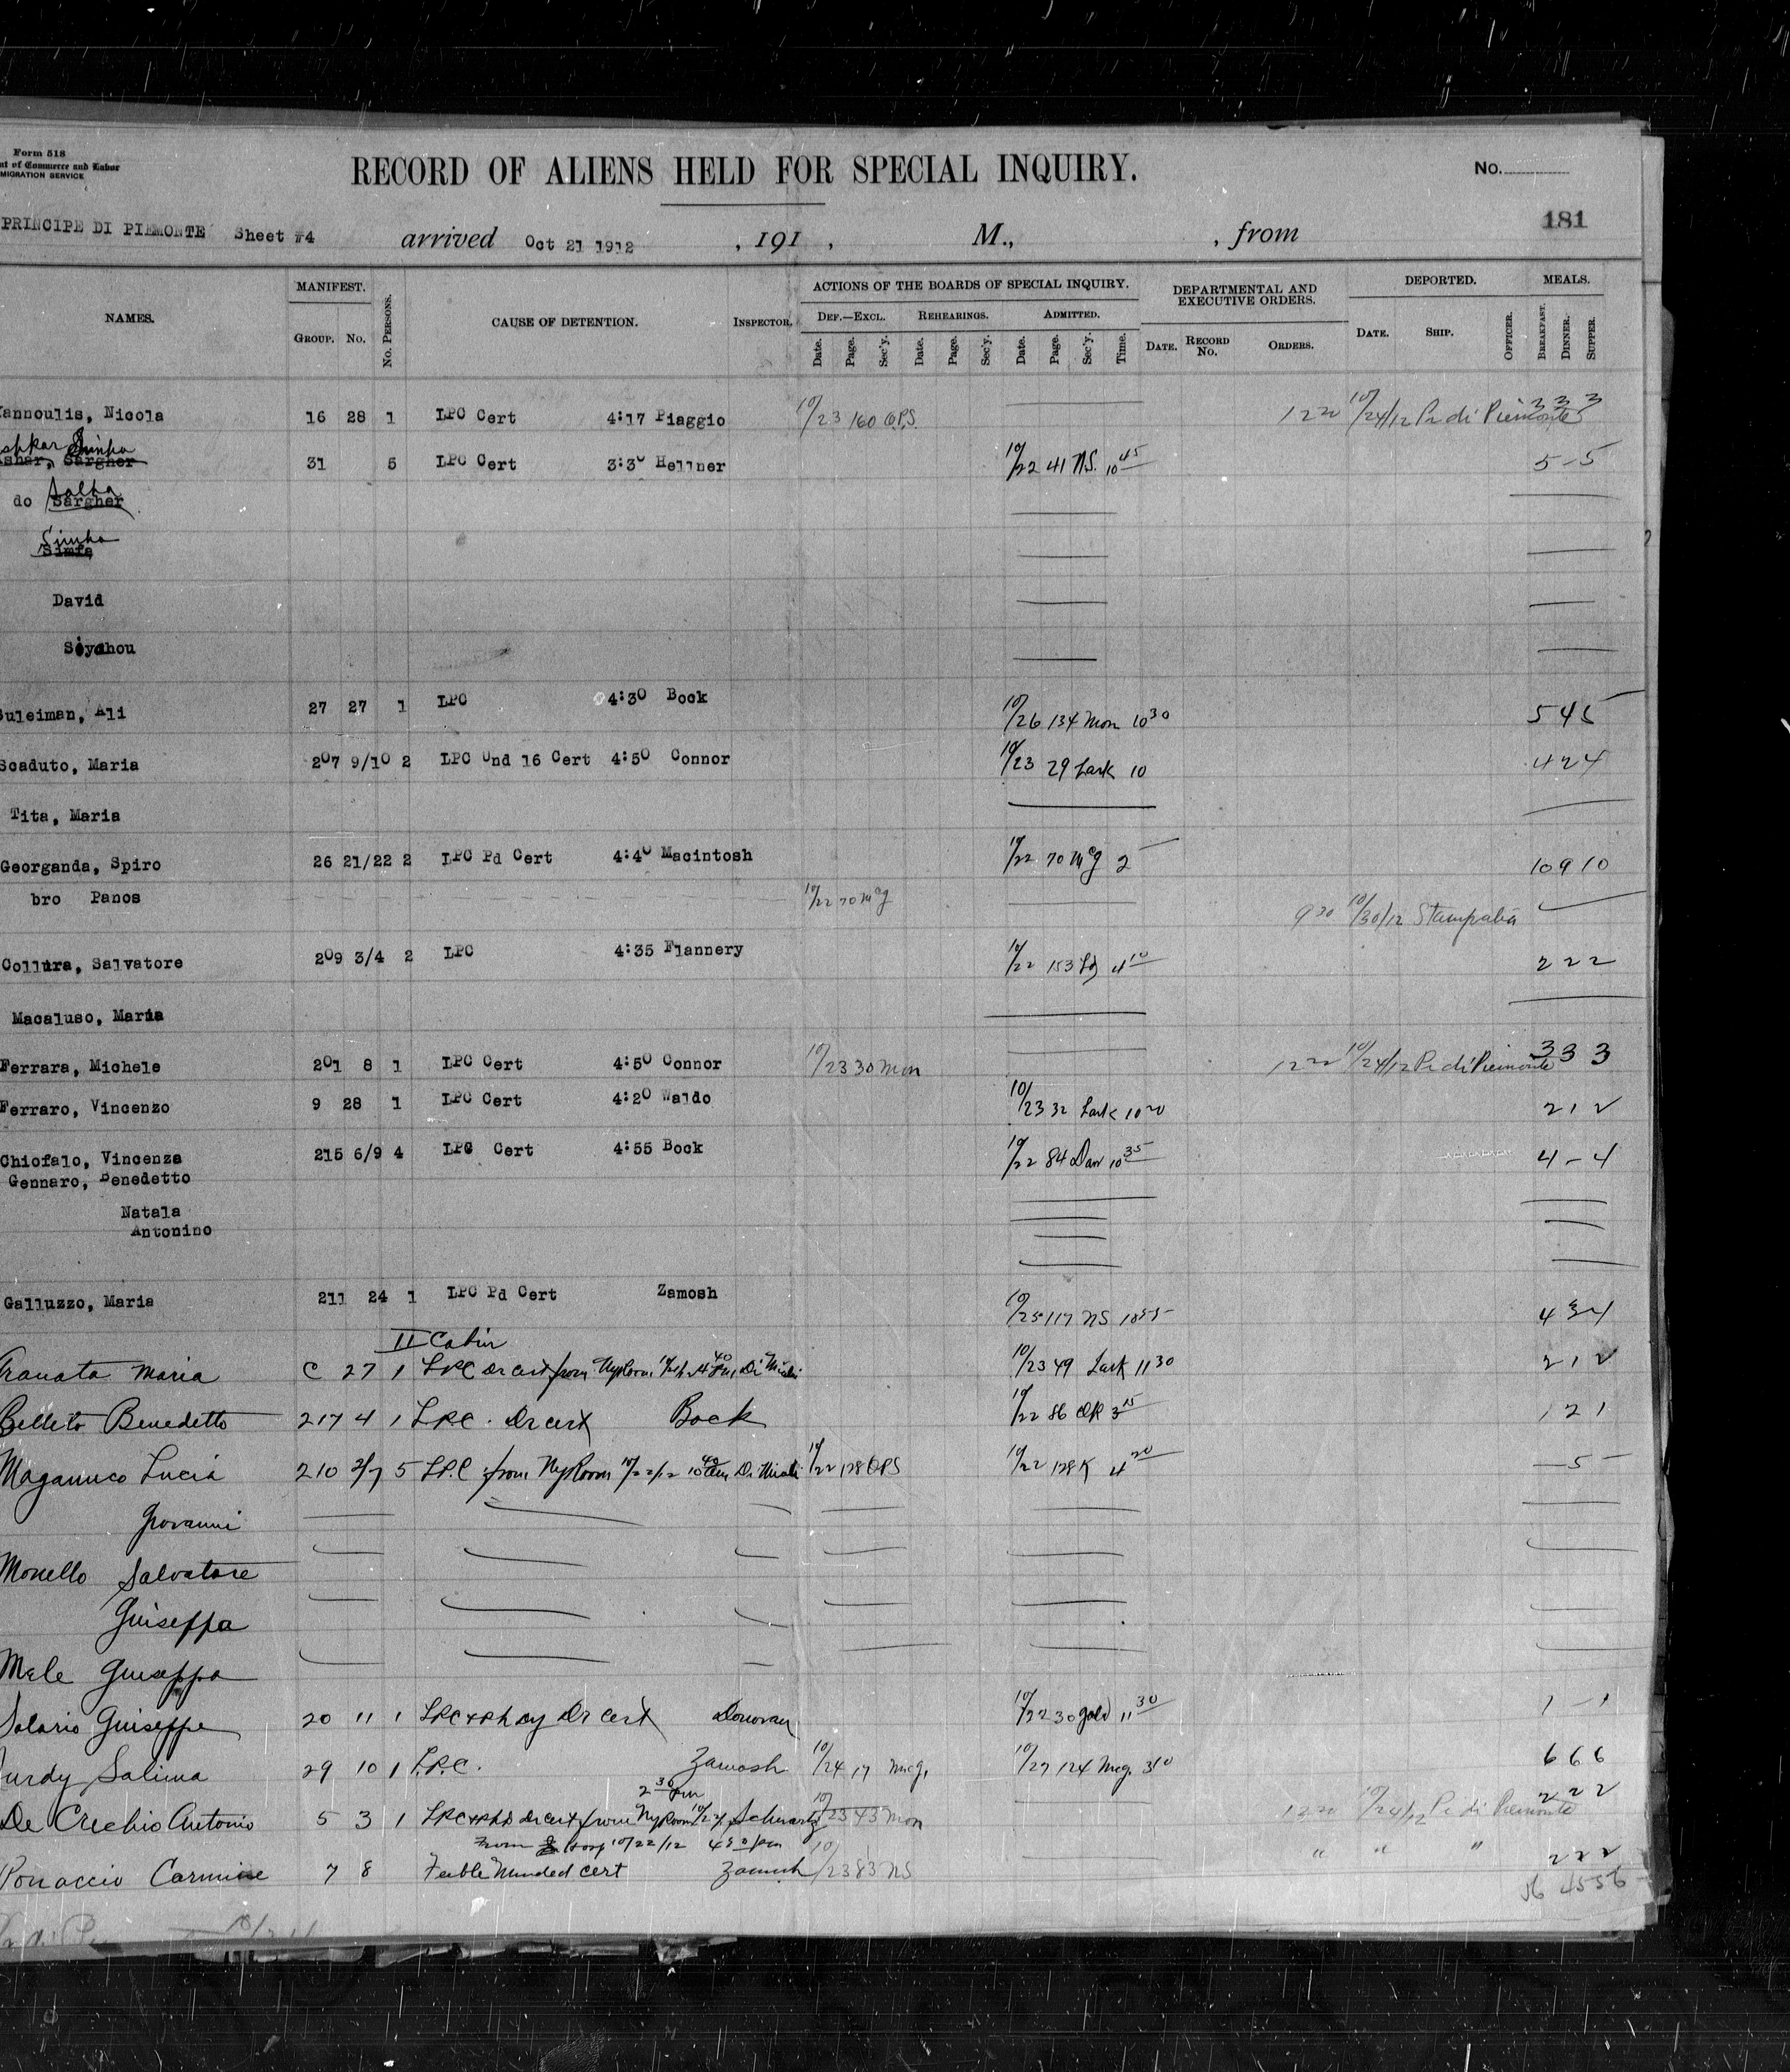 Form 518
nt of Commerce and Labor
MIGRATION SERVICE
RECORD OF ALIENS HELD FOR SPECIAL INQUIRY.
No.
PRINCIPE DI PIEMONTE Sheet #4 arrived Oct 21 1912 , 191 , M., , from 181
NAMES. MANIFEST. No. PERSONS. CAUSE OF DETENTION. INSPECTOR. ACTIONS OF THE BOARDS OF SPECIAL INQUIRY. DEPARTMENTAL AND EXECUTIVE ORDERS. DEPORTED. MEALS.
GROUP. No. DEF.—EXCL. REHEARINGS. ADMITTED. DATE. RECORD No. ORDERS. DATE. SHIP. OFFICER. BREAKFAST. DINNER. SUPPER.
Date. Page. Sec'y. Date. Page. Sec'y. Date. Page. Sec'y. Time.
annoulis, Nicola 16 28 1 LPC Cert 4:17 Piaggio 10/23 160 12 20 10/24/12 Pr di Piemonte 3 3 3
shkar Simha
shar, Sargher 31 5 LPC Cert 3:30 Hellner 10/22 41 NS. 10 45 5 - 5
do Sargher
Simha
Simfa
David
Siyahou
uleiman, Ali 27 27 1 LPC 4:30 Bock 10/26 134 Mon 10 30 5 4 5
Scaduto, Maria 207 9/10 2 LPC Und 16 Cert 4:50 Connor 10/23 29 Lark 10 4 2 4
Tita, Maria
Georganda, Spiro 26 21/22 2 LPC Pd Cert 4:40 Macintosh 10/22 70 McG 2 10 9 10
bro Panos 10/22 70 McG 9 30 10/30/12 Stampalia
Collura, Salvatore 209 3/4 2 LPC 4:35 Flannery 10/22 153 4 10 2 2 2
Macaluso, Maria
Ferrara, Michele 201 8 1 LPC Cert 4:50 Connor 10/23 30 Mon 12 20 10/24/12 Pr di Piemonte 3 3 3
Ferraro, Vincenzo 9 28 1 LPC Cert 4:20 Waldo 10/23 32 Lark 10 20 2 1 2
Chiofalo, Vincenza 215 6/9 4 LPC Cert 4:55 Bock 10/22 84 Dan 10 35 4 - 4
Gennaro, Benedetto
Natala
Antonino
Galluzzo, Maria 211 24 1 LPC Pd Cert Zamosh 10/25 117 NS 4 3 4
II Cabin
Maria C 27 1 LPC Dr cert from NyRoom 10/23 49 Lark 11 30 2 1 2
Belleto Benedetto 217 4 1 LPC. Dr cert Bock 10/22 86 3 15 1 2 1
Maganuco Lucia 210 3/7 5 LPC from NyRoom 10/22/12 10/22 128 OPS 10/22 128 K 4 20 - 5 -
Giovanni
Monello Salvatore
Guiseppa
Mele Guiseppa
Solario Guiseppe 20 11 1 Dr Cert Donovan 10/22 30 Gold 11 30 1 - 1
urdy Salima 29 10 1 L.P.C. Zamosh 10/24 17 McG. 10/27 124 McG. 3 10 6 6 6
2 30 pm
De Crechio Antonio 5 3 1 Dr cert from NyRoom Schwartz 10/23 43 Mon 12 20 10/24/12 Pr di Piemonte 2 2 2
From Hosp 10/22/12 4 50 pm
Carmine 7 8 Feeble Minded cert Zamosh 10/23 83 NS " " " 2 2 2
56 45 56